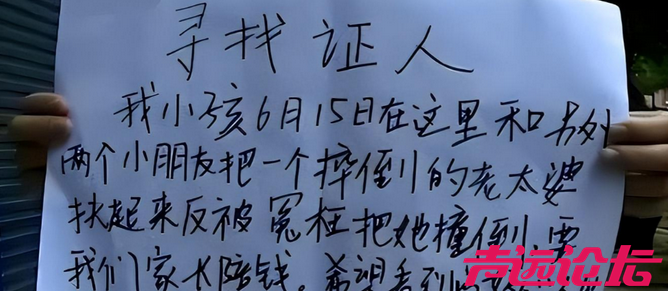 寻找证人
我小孩6月15日在这里和另外
两个小朋友把一个摔倒的老太婆
扶起来反被冤枉把她撞倒,要
我们家长陪钱。希望看到的
声远论坛